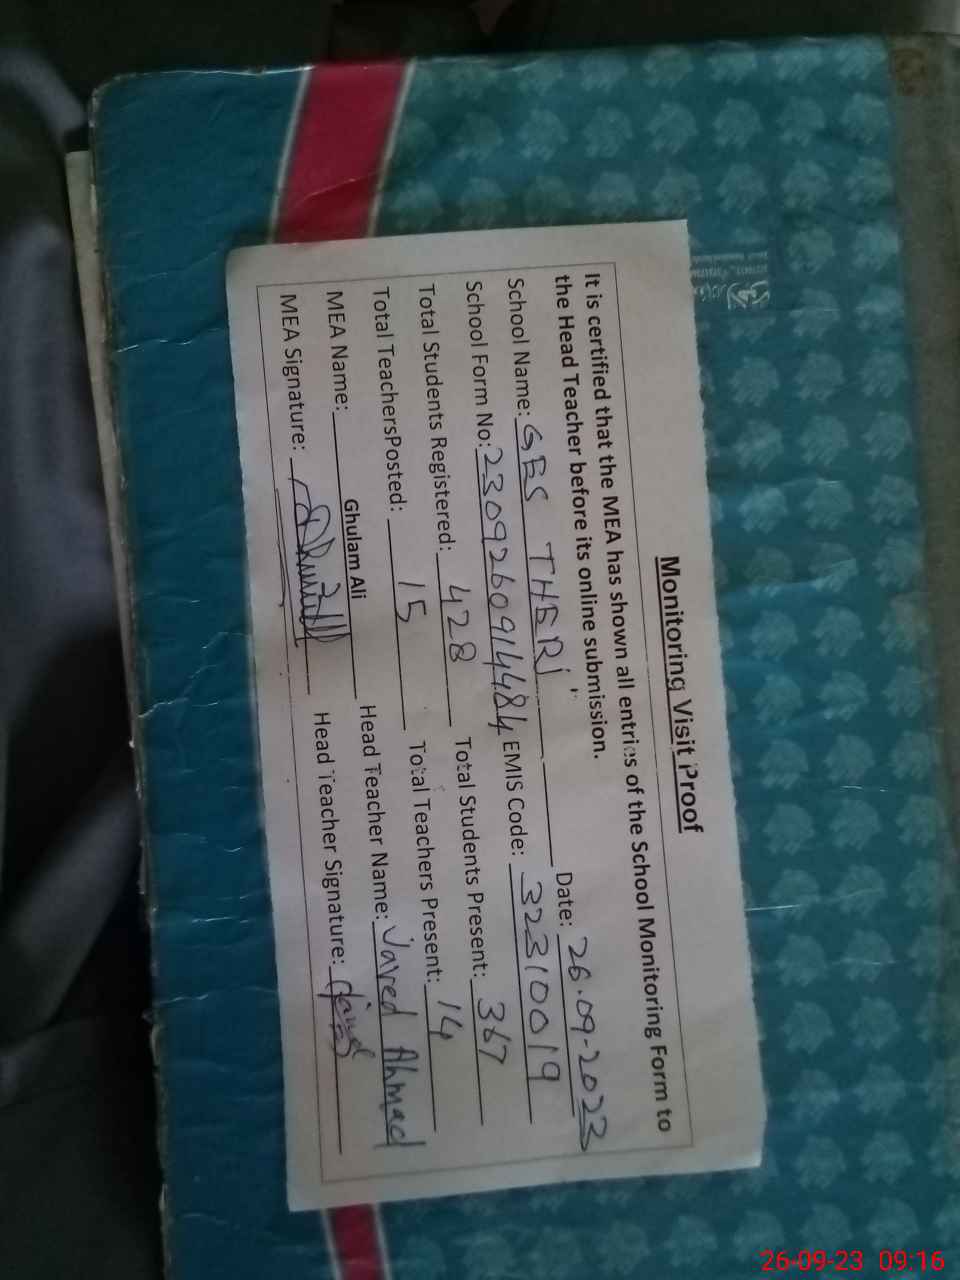 Monitoring Visit Proof
It is certified that the MEA has shown all entries of the School Monitoring Form to
the Head Teacher before its online submission.
School Name: GES THERI Date: 26.09-2023
School Form No: 2309260914484 EMIS Code: 32310019
Total Students Registered: 428 Total Students Present: 367
Total TeachersPosted: 15 Total Teachers Present: 14
MEA Name: Ghulam Ali Head Teacher Name: Javed Ahmad
MEA Signature: Head Teacher Signature:
26-09-23 09:16